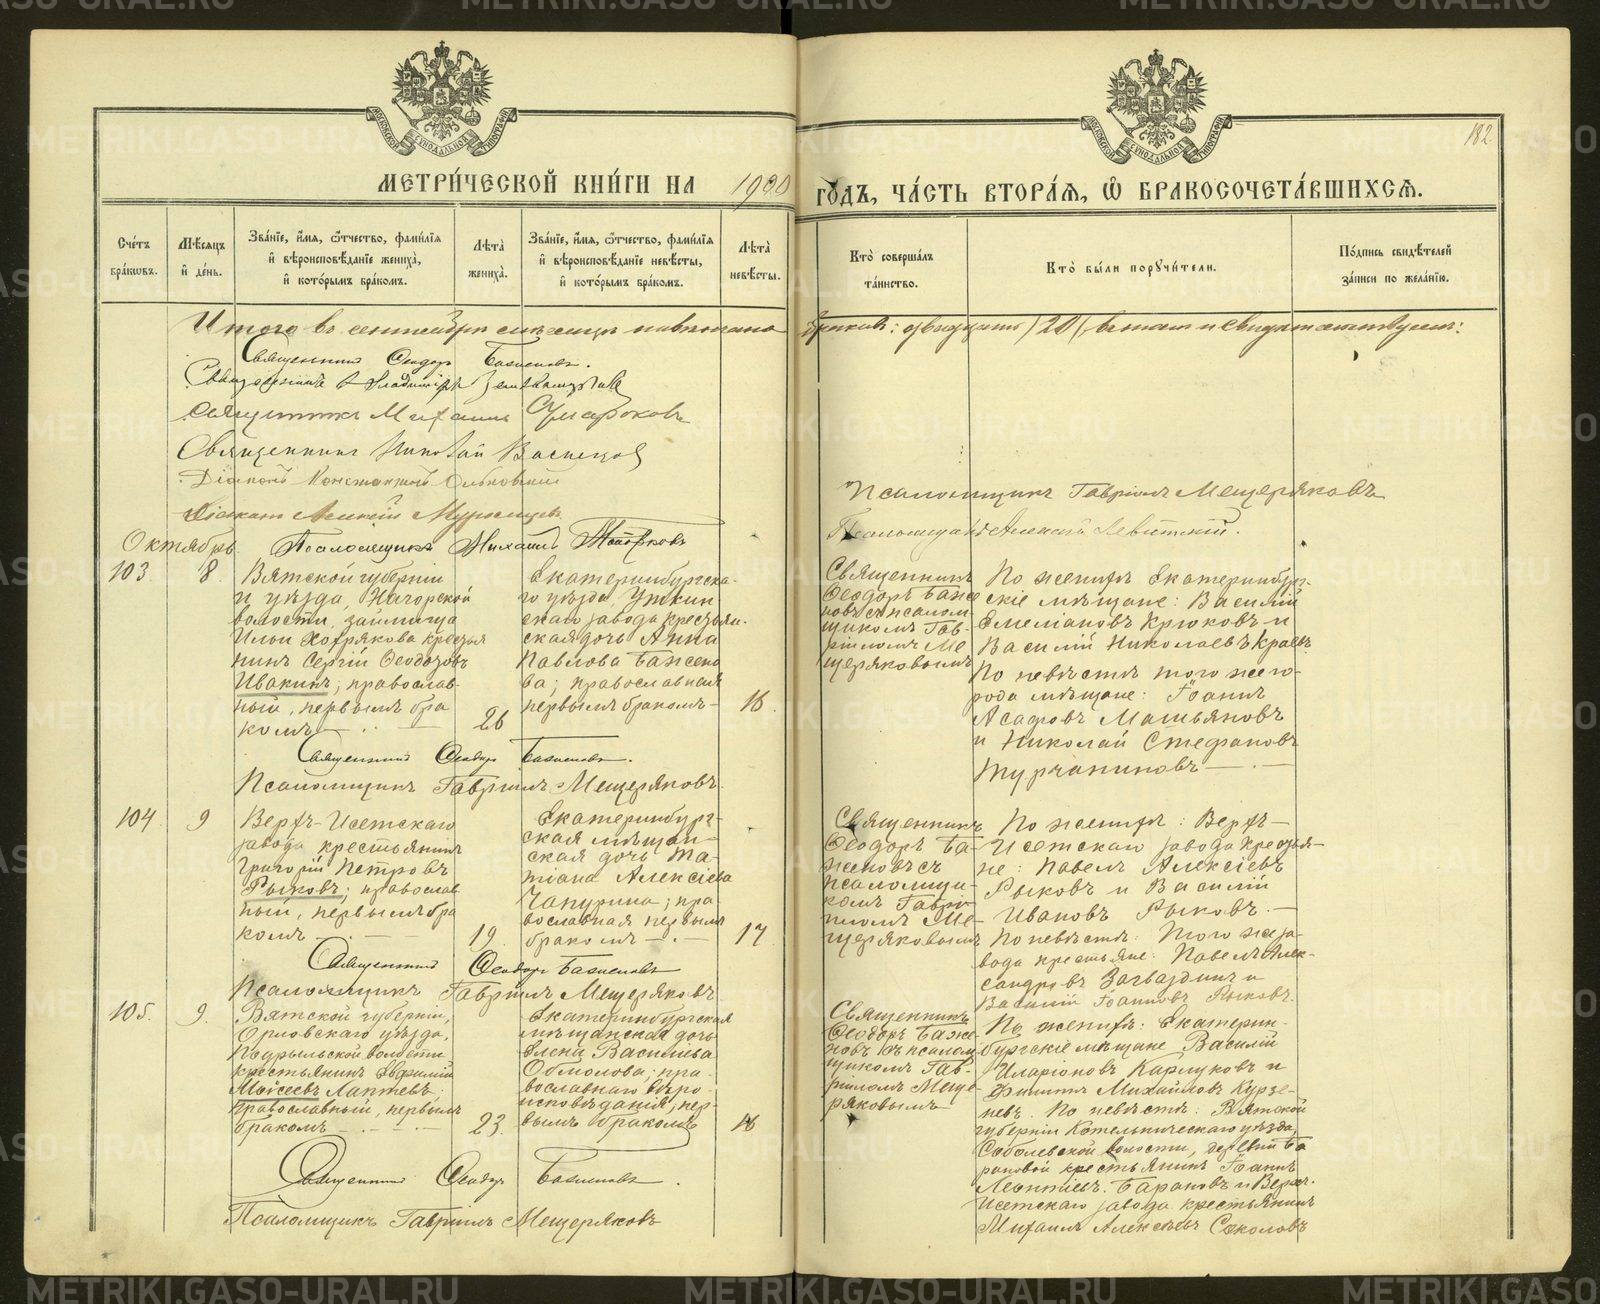 182
МЕТРИ́ЧЕСКОЙ КНИ́ГИ НА 1900 ГО́ДЪ, ЧА́СТЬ ВТОРА́Ѧ, Ѡ БРАКОСОЧЕТА́ВШИХСѦ.
Сче́тъ бра́кѡвъ.
Мѣ́сѧцъ и҆ де́нь.
Зва́нїе, и҆́мѧ, ѻ҆́тчество, фамилїѧ и҆ вѣроисповѣ́данїе жениха̀, и҆ кото́рымъ бра́комъ.
Лѣта̀ жениха̀.
Зва́нїе, и҆́мѧ, ѻ҆́тчество, фамилїѧ и҆ вѣроисповѣ́данїе невѣ́сты, и҆ кото́рымъ бра́комъ.
Лѣта̀ невѣ́сты.
Кто̀ соверша́лъ та́инство.
Кто̀ бы́ли порꙋчи́тели.
По́дпись свидѣ́телей за́писи по жела́нїю.
Итого въ сентябрѣ мѣсяцѣ повѣнчано браковъ: двадцать /20/, въ чемъ и свидѣтельствуемъ:
Священникъ Ѳеодоръ Баженовъ.
Священникъ Владиміръ
Священникъ Михаилъ
Священникъ Николай Васнецов
Діаконъ Константинъ
Псаломщикъ Гавріилъ Мещеряковъ
Діаконъ Алексій
Псаломщикъ Алексѣй Левитскій.
Октябрь.
Псаломщикъ Михаилъ
103
8
Вятской губерніи
и уѣзда, Нагорской
волости, займища
Ильи Хохрякова крестья
нинъ Сергій Ѳеодоровъ
Ивакинъ; православ-
ный, первымъ бра
комъ
26
Екатеринбургска-
го уѣзда, Уткин
скаго завода крестьян-
ская дочь Анна
Павлова Бажено
ва; православная
первымъ бракомъ
16
Священникъ
Ѳеодоръ Баже
новъ съ псалом
щикомъ Гав-
ріиломъ Ме
щеряковымъ
По женихѣ Екатеринбург-
скіе мѣщане: Василій
Емеліановъ Крюковъ и
Василій Николаевъ Краевъ
По невѣстѣ того же го-
рода мѣщане: Іоаннъ
Асафовъ Мальяновъ
и Николай Стефановъ
Турчаниновъ
Священникъ Ѳеодоръ Баженовъ.
Псаломщикъ Гавріилъ Мещеряковъ.
104
9
Верхъ-Исетскаго
завода крестьянинъ
Григорій Петровъ
Рыковъ; православ
ный, первымъ бра
комъ
19
Екатеринбург-
ская мѣщан-
ская дочь Та-
тіана Алексіева
Чапурина; пра
вославная первымъ
бракомъ
17
Священникъ
Ѳеодоръ Ба-
женовъ съ
псаломщи-
комъ Гаврі
иломъ Ме-
щеряковымъ
По женихѣ: Верхъ-
Исетскаго завода крестья-
не: Павелъ Алексіевъ
Рыковъ и Василій
Ивановъ Рыковъ.
По невѣстѣ: Того же за-
вода крестьяне: Павелъ Алек-
сандровъ Загваздинъ и
Василій Іоанновъ Рыковъ.
Священникъ Ѳеодоръ Баженовъ
Псаломщикъ Гавріилъ Мещеряковъ
105.
9.
Вятской губерніи,
Орловскаго уѣзда,
Подрыльской волости
крестьянинъ Евфимій
Моисеевъ Лаптевъ,
православный, первымъ
бракомъ
23.
Екатеринбургская
мѣщанская дочь
Елена Василіева
Обмолова; пра-
вославнаго вѣро-
исповѣданія, пер-
вымъ бракомъ
18
Священникъ
Ѳеодоръ Баже
новъ съ псалом
щикомъ Гав-
ріиломъ Меще
ряковымъ
По женихѣ: Екатерин-
бургскіе мѣщане, Василій
Иларіоновъ Карлуковъ и
Филиппъ Михайловъ Курзе-
невъ. По невѣстѣ: Вятской
губерніи Котельническаго уѣзда,
Соболевской волости, деревни Ба
рановой крестьянинъ Іоаннъ
Леонтіевъ Барановъ и Верхъ-
Исетскаго завода крестьянинъ
Михаилъ Алексѣевъ Соколовъ
Священникъ Ѳеодоръ Баженовъ.
Псаломщикъ Гавріилъ Мещеряковъ
METRIKI.GASO-URAL.RU